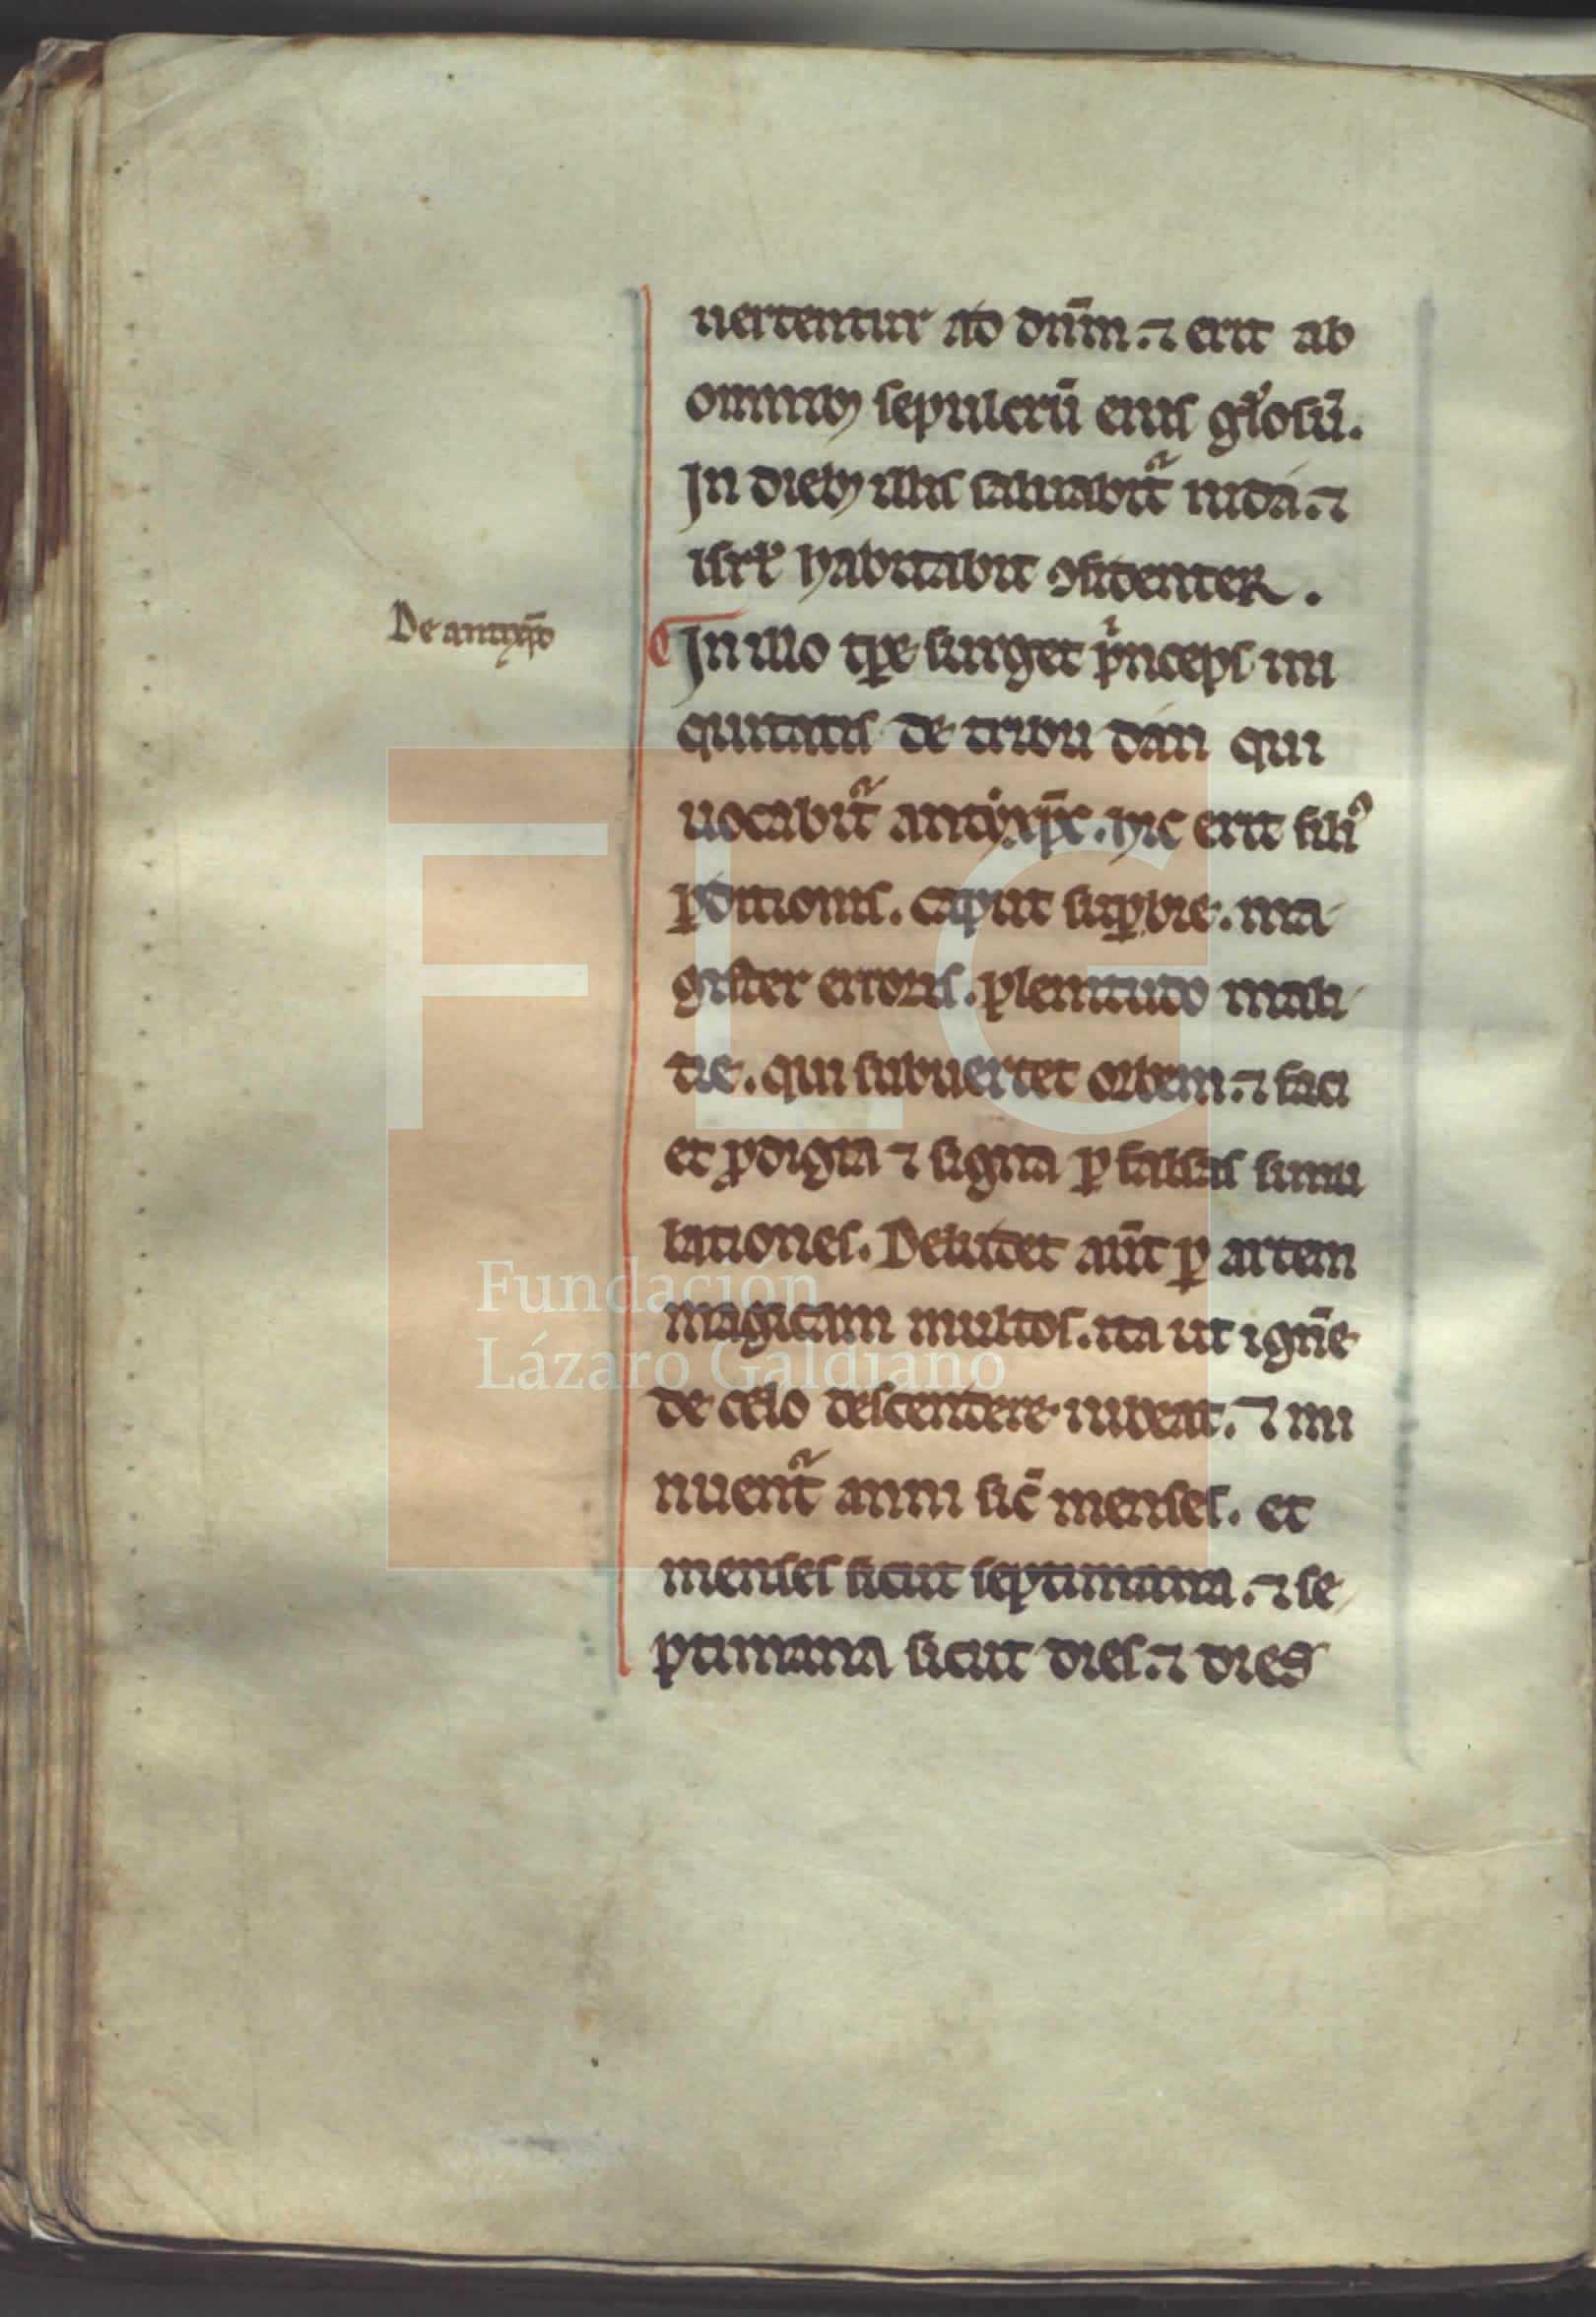 uertentur ad dñm. ⁊ erit ab
omnibꝰ sepulcrũ eius gl'osũ.
In diebꝰ illis saluabit̃ iuda. ⁊
isrl' habitabit ꝯfidenter.
De antixp̃o
In illo tp̃e surget pⁱnceps ini
quitatis de tribu dan qui
uocabit̃ antixp̃c. hic erit fili⁹
ꝑditionis. caput suꝑbie. ma-
gister erroris. plenitudo mali-
tie. qui subuertet orbem. ⁊ faci
et ꝓdigia ⁊ signa ꝑ falsas simu
lationes. Deludet aũt ꝑ artem
magicam multos. ita ut ignẽ
de celo descendere iubeat. ⁊ mi
nuent̃ anni sic̃ menses. et
menses sicut septimana. ⁊ se-
ptimana sicut dies. ⁊ dies
FLG
Fundación
Lázaro Galdiano